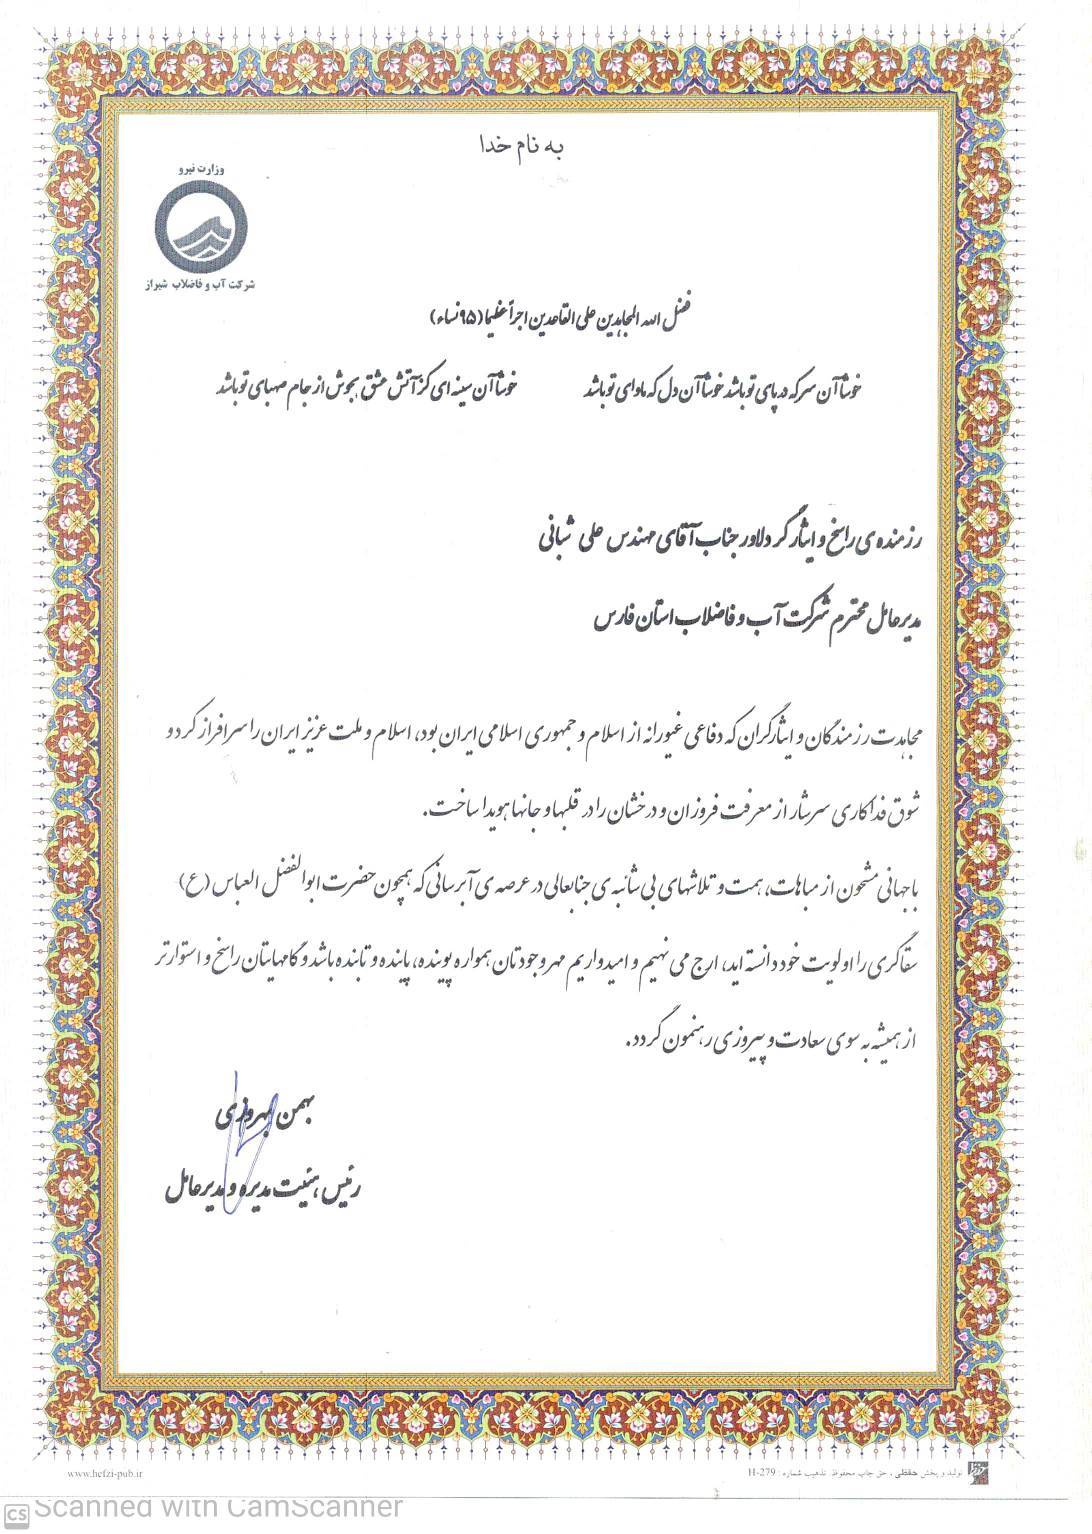 به نام خدا
وزارت نیرو
شرکت آب و فاضلاب شیراز
فضل الله المجاهدین علی القاعدین اجراً عظیما (۹۵ نساء)
خوشا آن سر که در پای تو باشد خوشا آن دل که ماوای تو باشد
خوشا آن سینه ای کز آتش عشق بجوش از جام صهبای تو باشد
رزمنده ی راسخ و ایثارگر دلاور جناب آقای مهندس علی شبانی
مدیرعامل محترم شرکت آب و فاضلاب استان فارس
مجاهدت رزمندگان و ایثارگران که دفاعی غیورانه از اسلام و جمهوری اسلامی ایران بود، اسلام و ملت عزیز ایران را سرافراز کرد و
شوق فداکاری سرشار از معرفت فروزان و درخشان را در قلبها و جانها هویدا ساخت.
با جهانی مشحون از مباهات، همت و تلاشهای بی شائبه ی جنابعالی در عرصه ی آبرسانی که همچون حضرت ابوالفضل العباس (ع)
سقاگری را اولویت خود دانسته اید، ارج می نهیم و امیدواریم مهر وجودتان همواره پوینده، پاینده و تابنده باشد و گامهایتان راسخ و استوارتر
از همیشه به سوی سعادت و پیروزی رهنمون گردد.
بهمن بهروزی
رئیس هیئت مدیره و مدیرعامل
www.hefzi-pub.ir
تولید و پخش حفظی ، حق چاپ محفوظ. تذهیب شماره : H-279
CS Scanned with CamScanner